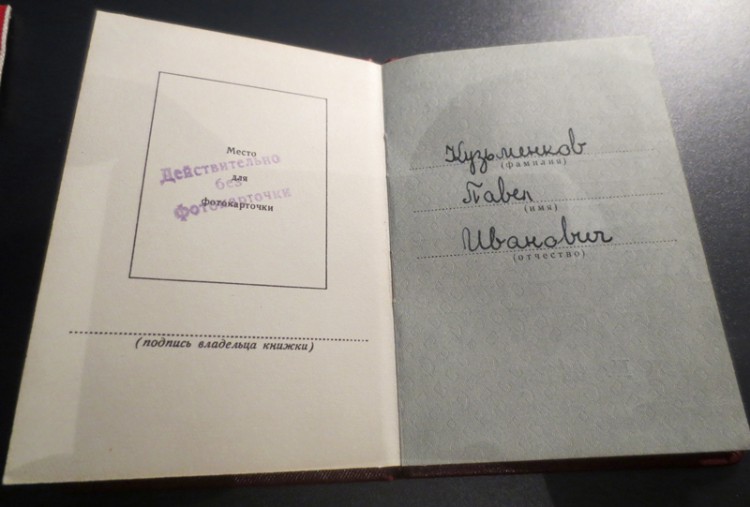 Место
Действительно
без
для
фотокарточки
фотокарточки
(подпись владельца книжки)
Кузьменков
(фамилия)
Павел
(имя)
Иванович
(отчество)